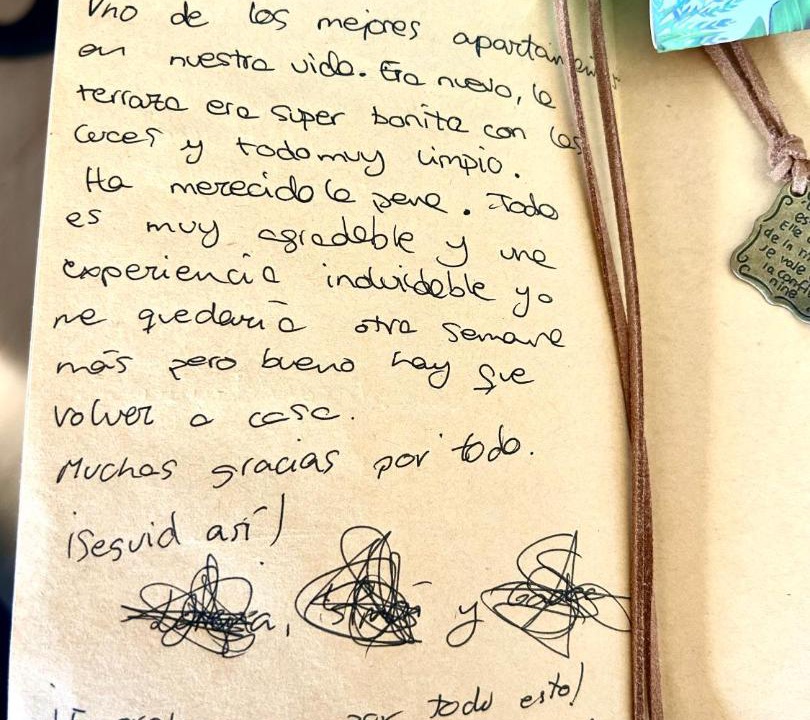 Uno de los mejores
en nuestra vida. Era nuevo, la
terraza era super bonita con las
luces y todo muy limpio.
Ha merecido la pena. Todo
es muy agradable y una
experiencia induidable yo
me quedaría otra semana
más pero bueno hay que
volver a casa.
Muchas gracias por todo.
¡Seguid así!
y
por todo esto!
es
Elle
de la
je vale
la conf
nine